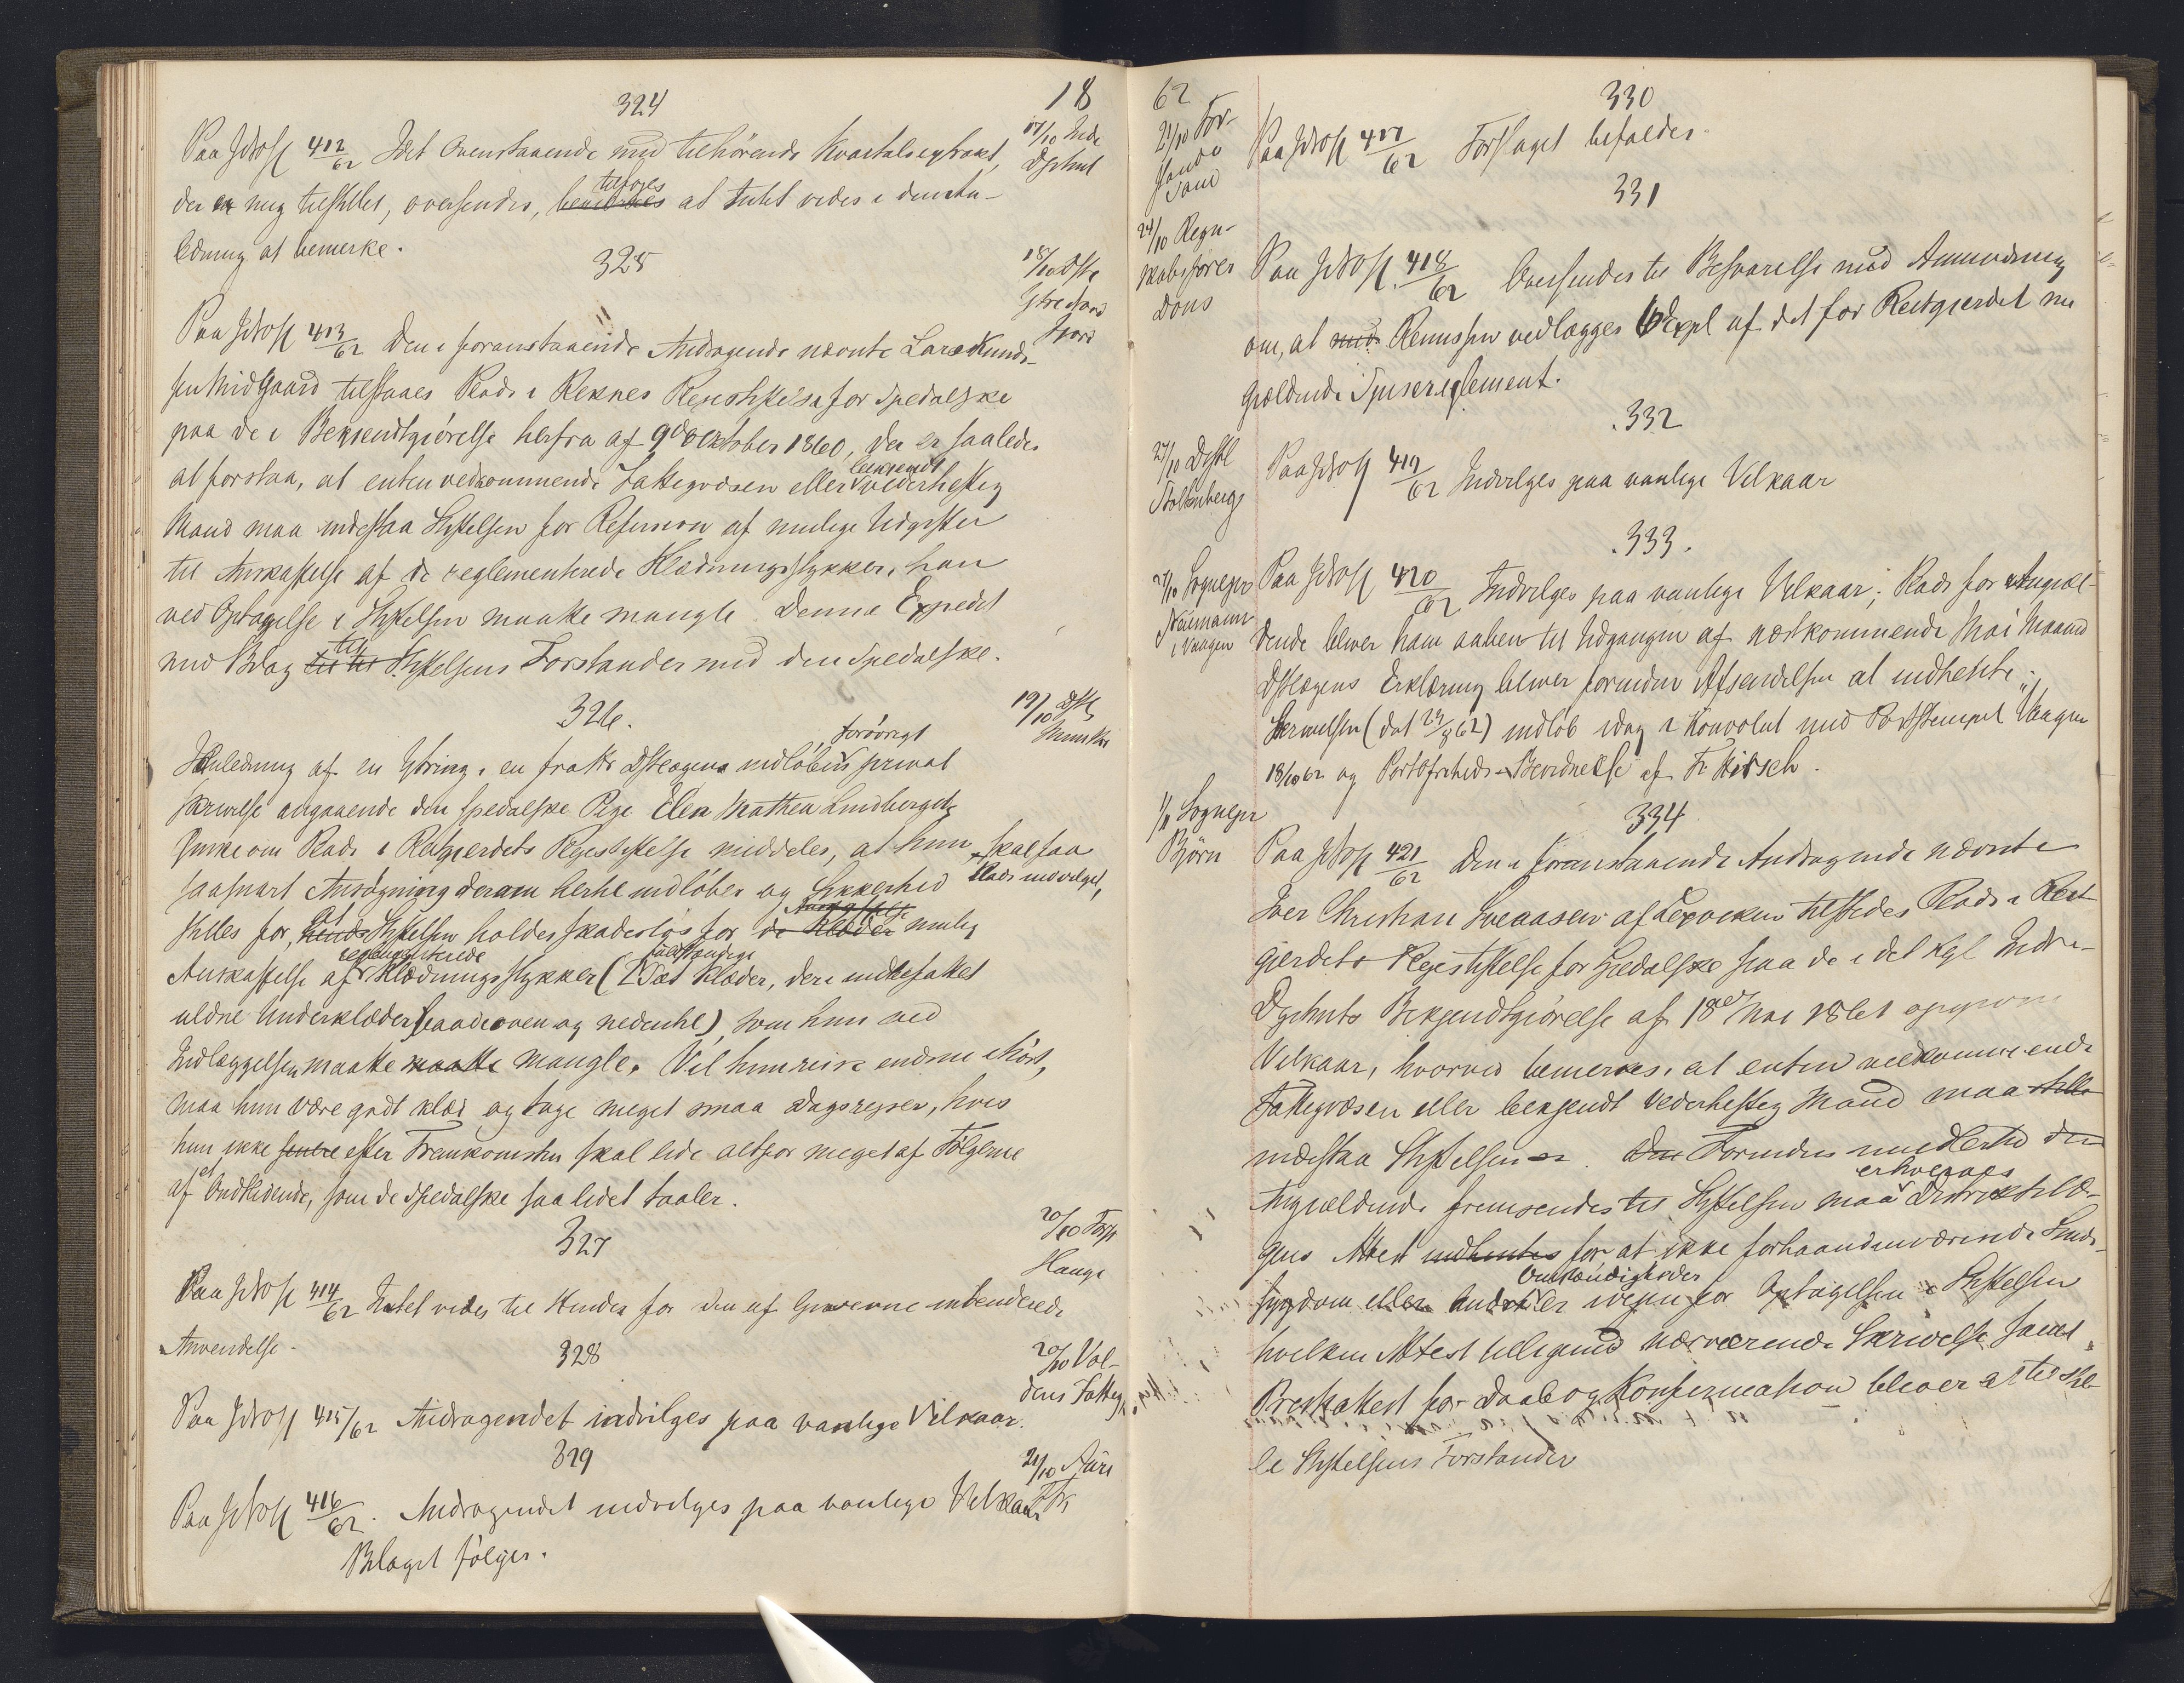 324
18
17/10 Inde
Dpthmt
Paa JNo 412/62 Idet Ovenstaaende med tilhörende Kvartalsextract,
der er mig tilstillet, oversendes, bemerkes tilföies at Intet vides i denne An-
ledning at bemerke.
325
18/10 Dstl
Paa JNo 413/62 Den i foranstaaende Andragende nævnte Lars Knud-
sen Midgaard tilstaaes Plads i Reknes Pleiestiftelse for Spedalske
paa de i Bekjendtgjörelse herfra af 9de Oktober 1860, der er saaledes
at forstaa, at enten vedkommende Fattigvæsen eller bekjendt vederheftig
Mand maa indestaa Stiftelsen for Refusion af mulige Udgifter
til Anskaffelse af de reglementerede Klædningsstykker, han
ved Optagelse i Stiftelsen maatte mangle. Denne Expedit
med Bilag til Stiftelsens Forstander med den Spedalske.
326.
19/10 Dstl
I Anledning af en Ytring i en fra Hr Dstlægens indlöben forövrigt privat
Skrivelse angaaende den spedalske Pige Elen Mathea Lindbergets
Ønske om Plads i Reitgjerdets Pleiestiftelse meddeles, at hun skal faa
Plads indvilget,
saasnart Ansögning derom hertil indlöber og Sikkerhed
stilles for, at Stiftelsen holdes skadeslös for de Klæder Anskaffelse mulig
Anskaffelse af reglementerede Klædningsstykker (2 Sæt fuldstændige Klæder, deri indbefattet
uldne Underklæder baade oven og nedentil) som hun ved
Indlæggelsen maatte maatte mangle. Vil hun reise endnu i Höst,
maa hun være godt klæd og tage meget smaa Dagsreiser, hvis
hun ikke senere efter Fremkomsten skal lide altfor meget af Fölgerne
af et Ondtlidende, som de Spedalske saa lidet taaler.
327
20/10 Forst
Hauge
Paa JNo 414/62 Intet vides til Hinder for den af intenderede
Anvendelse.
328
20/10 Vol-
dens Fattig
Paa JNo 415/62 Andragendet indvilges paa vanlige Vilkaar.
329
21/10 Aure
Fk
Paa JNo 416/62. Andragendet indvilges paa vanlige Vilkaar
Bilaget fölger.
62
330
21/10 For-
stander
Sand
Paa JNo 417/62 Forslaget bifaldes.
331
24/10 Regn-
skabsförer
Dons
Paa JNo 418/62 Oversendes til Besvarelse med Anmodning
om, at med Remissen vedlægges 6 Expl af det for Reitgjerdet nu
gjældende Spisereglement.
332
27/10 Dstl
Stoltenberg
Paa JNo 419/62 Indvilges paa vanlige Vilkaar
333.
27/10 Sognepr
Neumann
i Vaagen
Paa JNo 420/62 Indvilges paa vanlige Vilkaar; Plads for Angjæl-
dende bliver ham aaben til Udgangen af næstkommende Mai Maaned
Dstlægens Erklæring bliver forinden Afsendelsen at indhente;
Skrivelsen (dat 29/8 62) indlöb idag i Konvolut med Poststempel Vaagen
18/10 62 og Portofriheds-Bevidnelse af
334
1/11 Sognepr
Björn
Paa JNo 421/62 Den i foranstaaende Andragende nævnte
Iver Christian Sveaasen af Lexviken tilstedes Plads i Reit-
gjerdets Pleiestiftelse for Spedalske paa de i det Kgl Indre-
Dpthmts Bekjendtgjörelse af 18de Mai 1861
Vilkaar, hvorved bemerkes, at enten vedkommende
Fattigvæsen eller bekjendt vederheftig Mand maa stille
indestaa Stiftelsen. Den Forinden imidlertid den
Angjældende fremsendes til Stiftelsen maa erhverves Distriktslæ-
gens Attest indhentes for at ikke forhaandenværende Smit-
sygdom eller andre Omstændigheder er iveien for Optagelsen i Stiftelsen
hvilken Attest tilligemed nærværende Skrivelse samt
Presteattest for Daab og Konfirmation bliver at tilstil-
le Stiftelsens Forstander